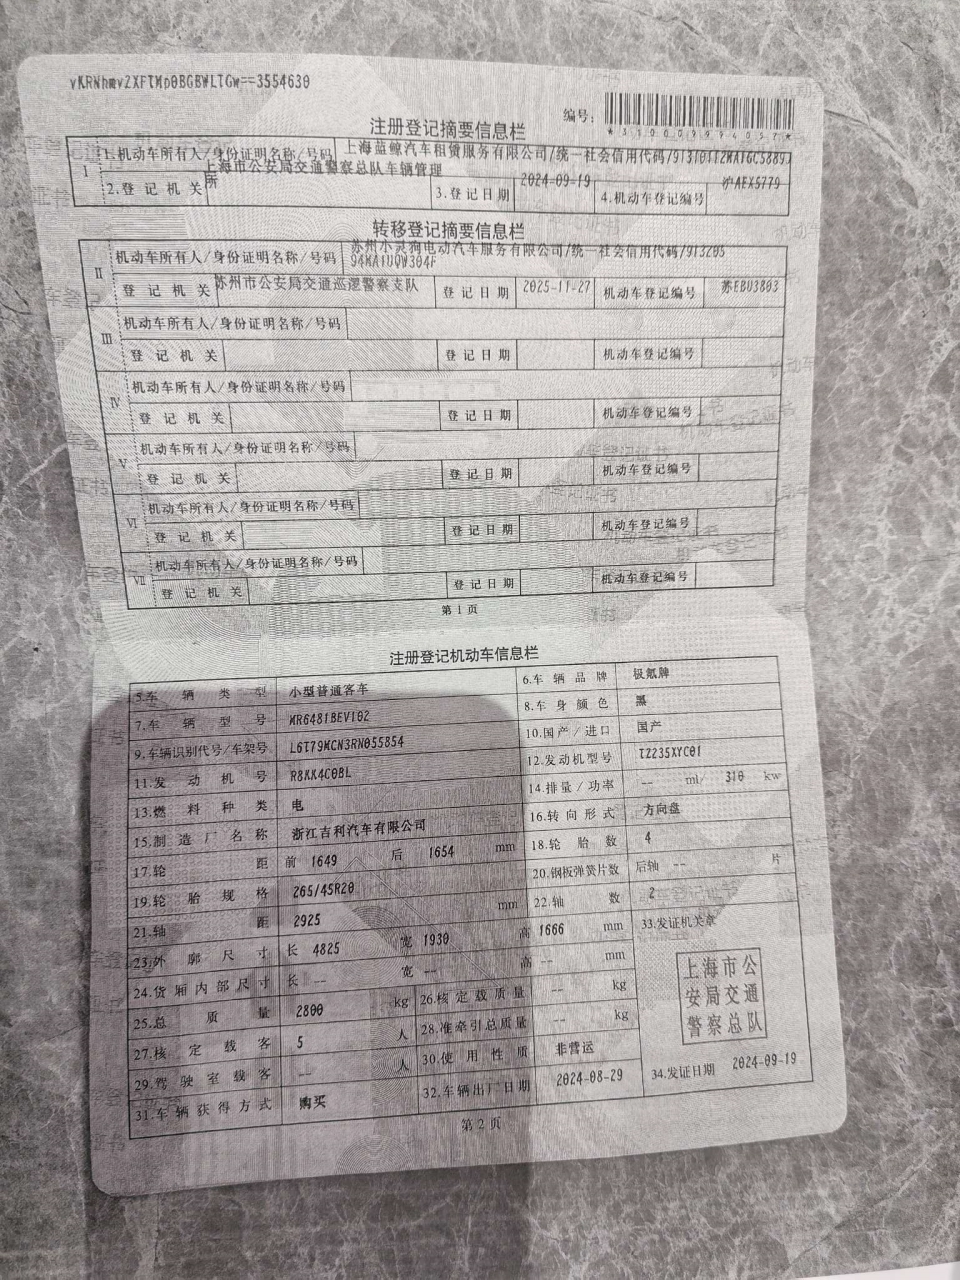 vKRNhmv2XFTMp0BGBWLTGw==3554630
编号:
*310009994057*
注册登记摘要信息栏
1 1.机动车所有人/身份证明名称/号码 上海蓝鲸汽车租赁服务有限公司/统一社会信用代码/91310112MA1GC5889J
2.登记机关 上海市公安局交通警察总队车辆管理所 3.登记日期 2024-09-19 4.机动车登记编号 沪AEX5779
转移登记摘要信息栏
II 机动车所有人/身份证明名称/号码 苏州小灵狗电动汽车服务有限公司/统一社会信用代码/91320594MA1UQW304F
登记机关 苏州市公安局交通巡逻警察支队 登记日期 2025-11-27 机动车登记编号 苏EBU3803
III 机动车所有人/身份证明名称/号码
登记机关 登记日期 机动车登记编号
IV 机动车所有人/身份证明名称/号码
登记机关 登记日期 机动车登记编号
V 机动车所有人/身份证明名称/号码
登记机关 登记日期 机动车登记编号
VI 机动车所有人/身份证明名称/号码
登记机关 登记日期 机动车登记编号
VII 机动车所有人/身份证明名称/号码
登记机关 登记日期 机动车登记编号
第1页
注册登记机动车信息栏
5.车辆类型 小型普通客车 6.车辆品牌 极氪牌
7.车辆型号 MR6481BEV102 8.车身颜色 黑
9.车辆识别代号/车架号 L6T79MCN3RN055854 10.国产/进口 国产
11.发动机号 R8KK4C0BL 12.发动机型号 TZ235XYC01
13.燃料种类 电 14.排量/功率 -- ml/ 310 kw
15.制造厂名称 浙江吉利汽车有限公司 16.转向形式 方向盘
17.轮距 前 1649 后 1654 mm 18.轮胎数 4
19.轮胎规格 265/45R20 20.钢板弹簧片数 后轴 -- 片
21.轴距 2925 mm 22.轴数 2
23.外廓尺寸 长 4825 宽 1930 高 1666 mm 33.发证机关章
24.货厢内部尺寸 长 -- 宽 -- 高 -- mm
25.总质量 2800 kg 26.核定载质量 -- kg
27.核定载客 5 人 28.准牵引总质量 -- kg
29.驾驶室载客 -- 人 30.使用性质 非营运
31.车辆获得方式 购买 32.车辆出厂日期 2024-08-29 34.发证日期 2024-09-19
上海市公
安局交通
警察总队
第2页